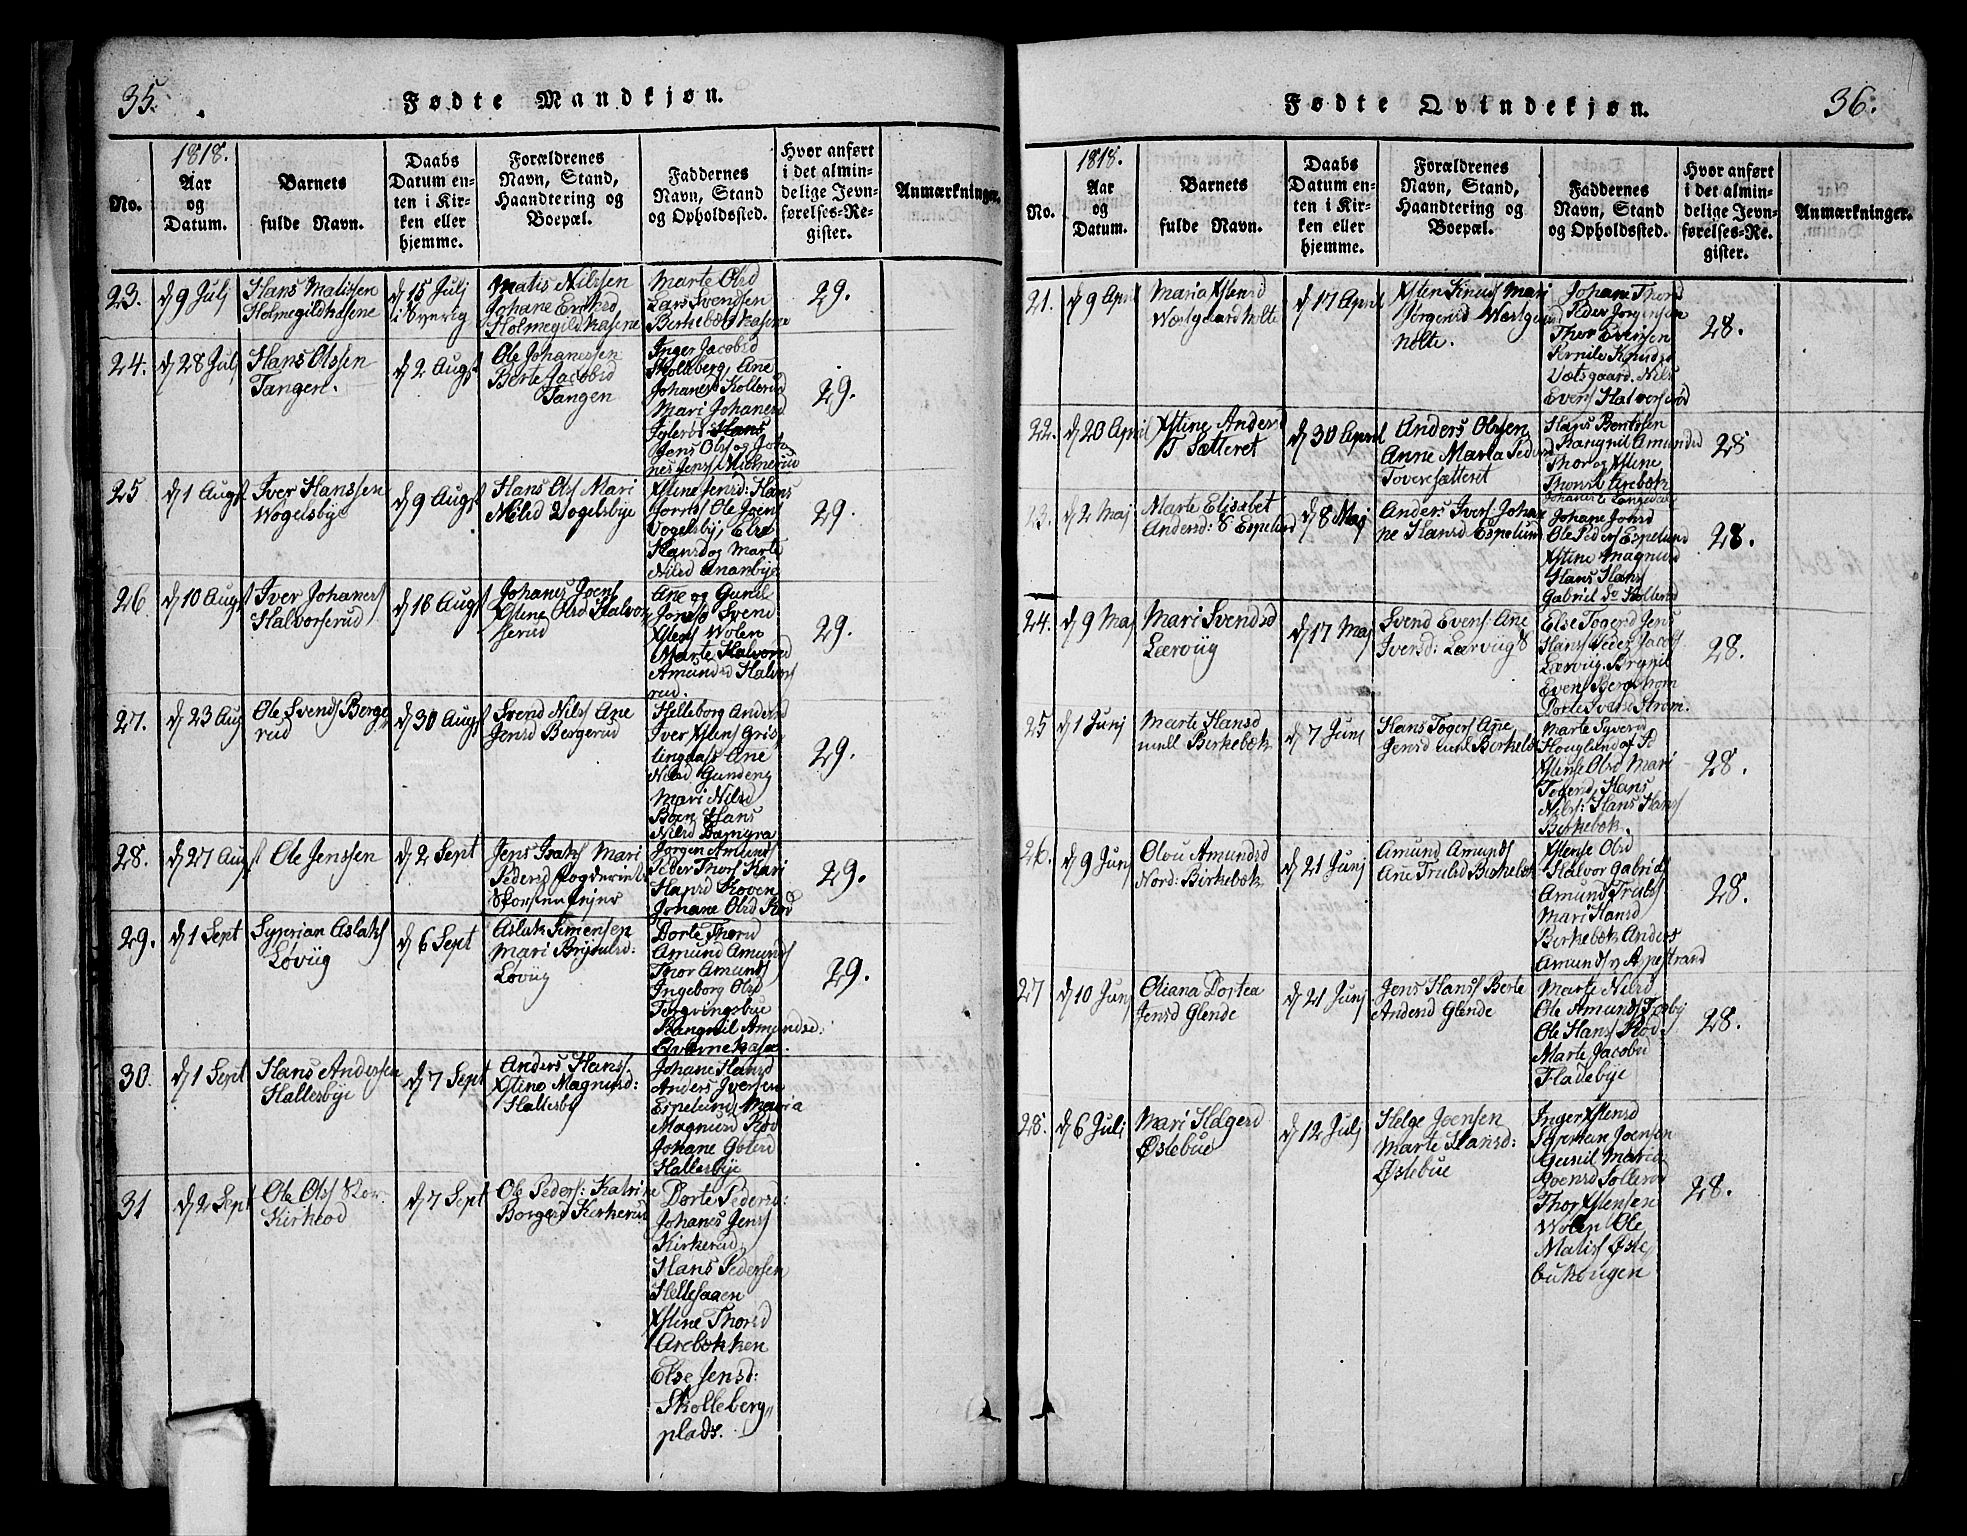 35.
Fødte Mandkjøn.
No.
1818.
Aar
og
Datum.
Barnets
fulde Navn.
Daabs
Datum en-
ten i Kir-
ken eller
hjemme.
Forældrenes
Navn, Stand,
Haandtering og
Boepæl.
Faddernes
Navn, Stand
og Opholdssted.
Hvor anført
i det almin-
delige Jevn-
førelses-Re-
gister.
Anmærkninger.
23.
d 9 Julj
Hans Matissen
Holmegildkasene
d 15 Julj
i Sverig
Matis Nilssen
Johane Ersksd
Holmegildkasene
Marte Olsd
Lars Svendsen
Berkebækkasene
29.
24.
d 28 Julj
Hans Olssen
Tangen.
d 2 Augst
Ole Johanessen
Berte Jacobsd
Tangen
Inger Jacobsd
Skolleberg, Ane
Johanesd Kollerud
Mari Johanesd
Hans
Jens Olss og Joh-
nes Jenss
29.
25
d 1 Augst
Iver Hanssen
Wogelsbye
d 9 Augst
Hans Olss Mari
Nilsd Vogelsbye
Xstine Jensd: Hans
Jornss Ole Jvers
Vogelsby, Else
Hansd og Marte
Nilsd Ananbye
29.
26
d 10 Augst
Iver Johaness
Halvorserud
d 16 Augst
Johanes Joens
Xstine Olsd Halvor
serud
Ane og Gunil
Jonsd Svend
Xstens Wolen
Marte Halvorsd
Amundsd Halvors
rud.
29.
27.
d 23 Aug
Ole Svends Berge
rud
d 30 Augst
Svend Nilss Ane
Jensd Bergerud
Helleborg Andersd
Iver Xstens Gris
lingaass Ane
Nilsd Gundeng
Mari Nilsd
Boen Hans
Nilsd Damyra
29.
28.
d 27 Augst
Ole Jenssen
d 2 Sept
Jens Isaks Mari
Pedersd
Skorstenfejer
Jørgen Amunds
Peder Thors Kari
Hansd Skoven
Johane Olsd Skov
29.
29.
d 1 Sept
Syverian Aslaks
Løvüg
d 6 Sept
Aslak Simensen
Mari Brynilsd:
Løvüg
Dorte Thorsd
Amund Amunds
Thor Amunds
Ingeborg Olsd
Torgvingsbue
Rangnil Amundsd:
Qvernekasa.
29.
30.
d 1 Sept
Hans Andersen
Hallesbye
d 7 Sept
Anders Hans:
Xstine Magnusd:
Hallesby
Johane Hansd
Anders Iversen
Espelund, Maria
Magnusd Skov
Johane Golersd
Hallesbye
31
d 2 Sept
Ole Olss Stor.
Kirkeod
d 7 Sept
Ole Peders: Katrine
Borgersd Kirkerud
Dorte Pedersd:
Johanes Jenss
Kirkerud,
Hans Pedersen
Hellesaaen
Xstine Thorsd
Arebækken
Else Jensd:
Skolleberg„
plads.
36.
Fødte Qvindekjøn.
No.
1818.
Aar
og
Datum.
Barnets
fulde Navn.
Daabs
Datum en-
ten i Kir-
ken eller
hjemme.
Forældrenes
Navn, Stand,
Haandtering og
Boepæl.
Faddernes
Navn, Stand
og Opholdssted.
Hvor anført
i det almin-
delige Jevn-
førelses-Re-
gister.
Anmærkninger.
21.
d 9 April
Maria Xstensd
Wæstgaardholte
d 17 April
Xsten Knuss Mari
Jørgensd Wæstgaard
holte.
Johane Thorsd
Peder Jørgensen
Thor Evensen
Pernile Knudsd
Vætsgaard. Nils
Evens Halvorserød
28.
22.
d 20 April
Xstine Andersd
T Sætteret
d 30 April
Anders Olssen
Anne Maria Pedersd
Toversætteret
Hans Bentssen
Rangnil Amundsd
Thor og Xstine
Thorsd Arebæk
28
23.
d 2 Maj
Marte Elisabet
Andersd: 8 Espelund
d 8 Maj
Anders Ivers Joha
ne Hansd Espelund
Johane Jonsd
Ole Peders Espelund
Xstine Magnusd
Hans Hans
Gabriel
28.
24.
d 9 Maj
Mari Svendsd
Lærvüg
d 17 Maj
Svend Evens Ane
Iversd: Lærvüg 8
Else Togersd Jens
Hanss Peder Jacobs
Lærvüg. Brynil
Evens Bergstrøm
Dorte Iversd Strøm.
28.
25
d 1 Junj
Marte Hansd
mell Birkebæk
d 7 Junj
Hans Togers Ane
Jensd mell Birkebæk
Marte Syversd
Houglund
Xstense Olsd Mari
Togersd, Hans
Nilss: Hans Hans
Birkebæk.
28.
26.
d 9 Junj
Olou Amundsd
Nord: Birkebæk
d 21 Junj
Amund Amunds
Ane Trulsd Birkebæk
Xstense Olsd
Halvor Gabriels
Amund Truls
Mari Hansd
Birkebæk Anders
Amunds Apestrand
28.
27
d 10 Junj
Oliana Dortea
Jensd Glende
d 21 Junj
Jens Hans Berte
Andersd Glende
Marte Nilsd
Ole Amunds
Ole Hans Skov
Marte Jacobsd
Fladebye
28.
28.
d 6 Julj
Mari Helgesd
Østebue
d 12 Julj
Helge Joensen
Marte Hansd:
Østebue
Inger Xstensd
Syverian Joensen
Gunil Maria
Goensd Sollerød
Thor Xstensen
Wolen Ole
Matiss Øste
bukougen
28.